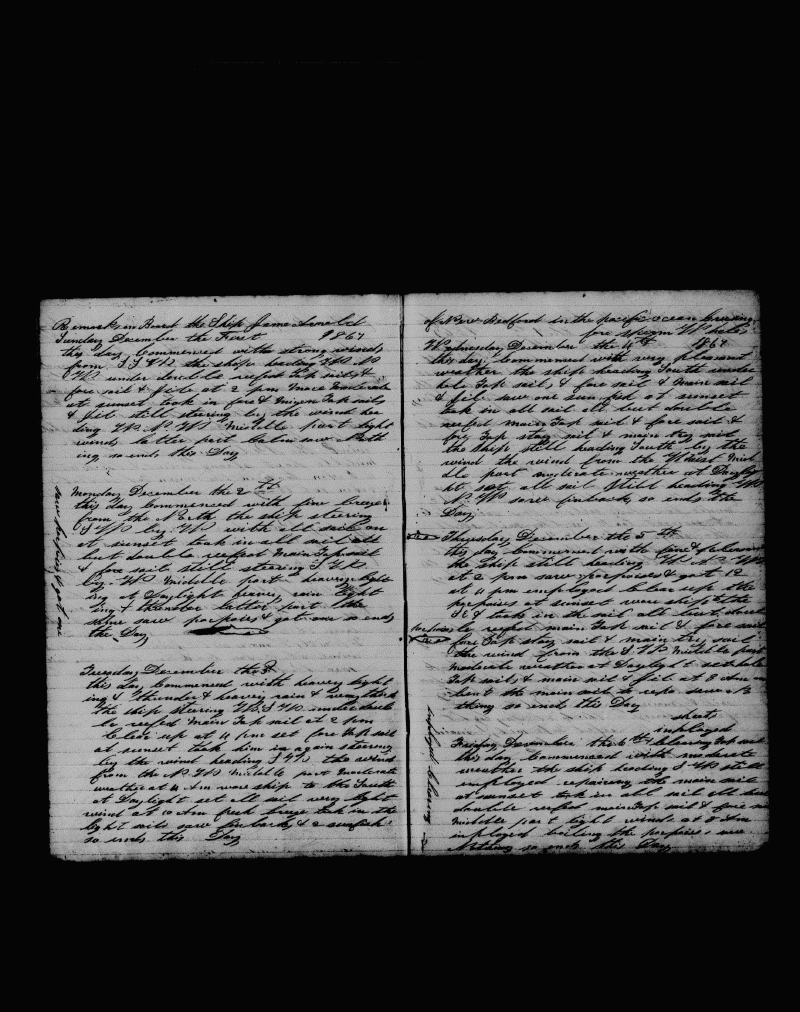 Remarks on Board the Ship James Arnold
Sunday December the First 1867
this day Commenced with strong winds
from the ship heading
under double reefed top sails &
fore sail & jib at 2 pm more moderate
at sunset took in fore & mizen top sails
& jib still stering by the wind hea
ding W N W Middle part light
winds latter part Calm saw Noth
ing so ends this Day
Monday December the 2th
this day Commenced with fine breeze
from the North the ship steering
S W by W with all sail on
at sunset took in all sail all
but double reefed Main Top sail
& fore sail still stering S W
by W Middle part heavy light
ing at Daylight heavy rain light
ing & thunder latter part the
same saw porposes & got one so ends
the Day
saw porpoises & got one
Tuesday December the 3
this day Commenced with heavy light
ing & thunder & heavy rain & very
the ship stering under double
reefed Main Top sail at 2 pm
Clear up at 4 pm set fore top sail
at sunset took him in again steering
by the wind heading the wind
from the N W Middle part Moderate
weather at 4 Am wore ship to the South
at Daylight set all sail very light
wind at 10 Am fresh breeze took in the
light sails saw finbacks & 2 sunfish
so ends this Day
of New Bedford in the pacific ocean Cruising
for sperm Whales
Wednesday December the 4th 1867
this day Commenced with very pleasant
weather the ship heading South under
hole Top sails & fore sail & main sail
& jib saw one sunfish at sunset
took in all sail all but double
reefed main Top sail & fore sail &
fore Top stay sail & main try sail
the ship still heading South by the
wind the wind from the West Mid
dle part moderate weather at Daylig
ht set all sail still heading
N W saw finback so ends the
Day
Thursday December the 5th
this day Commenced with fine & pleasant
the ship still heading W N W
at 2 pm saw porpoises & got 12
at 4 pm employed Clear up the
porpoises at sunset wore ship to the
S E took in the sail all but double
reefed main Top sail & fore sail
fore Top stay sail & main try sail
the wind from the S W Middle part
moderate weather at Daylight set hole
Top sails & main sail & jib at 8 Am un
bent the main sail to repa saw No
thing so ends this Day
sheets
imployed
Friday December the 6th
this day Commenced with moderate
weather the ship heading still
imployed repairing the main sail
at sunset took in all sail all but
double reefed main Top sail & fore sail
Middle part light winds at 8 Am
imployed boiling the porpoises saw
Nothing so ends this Day